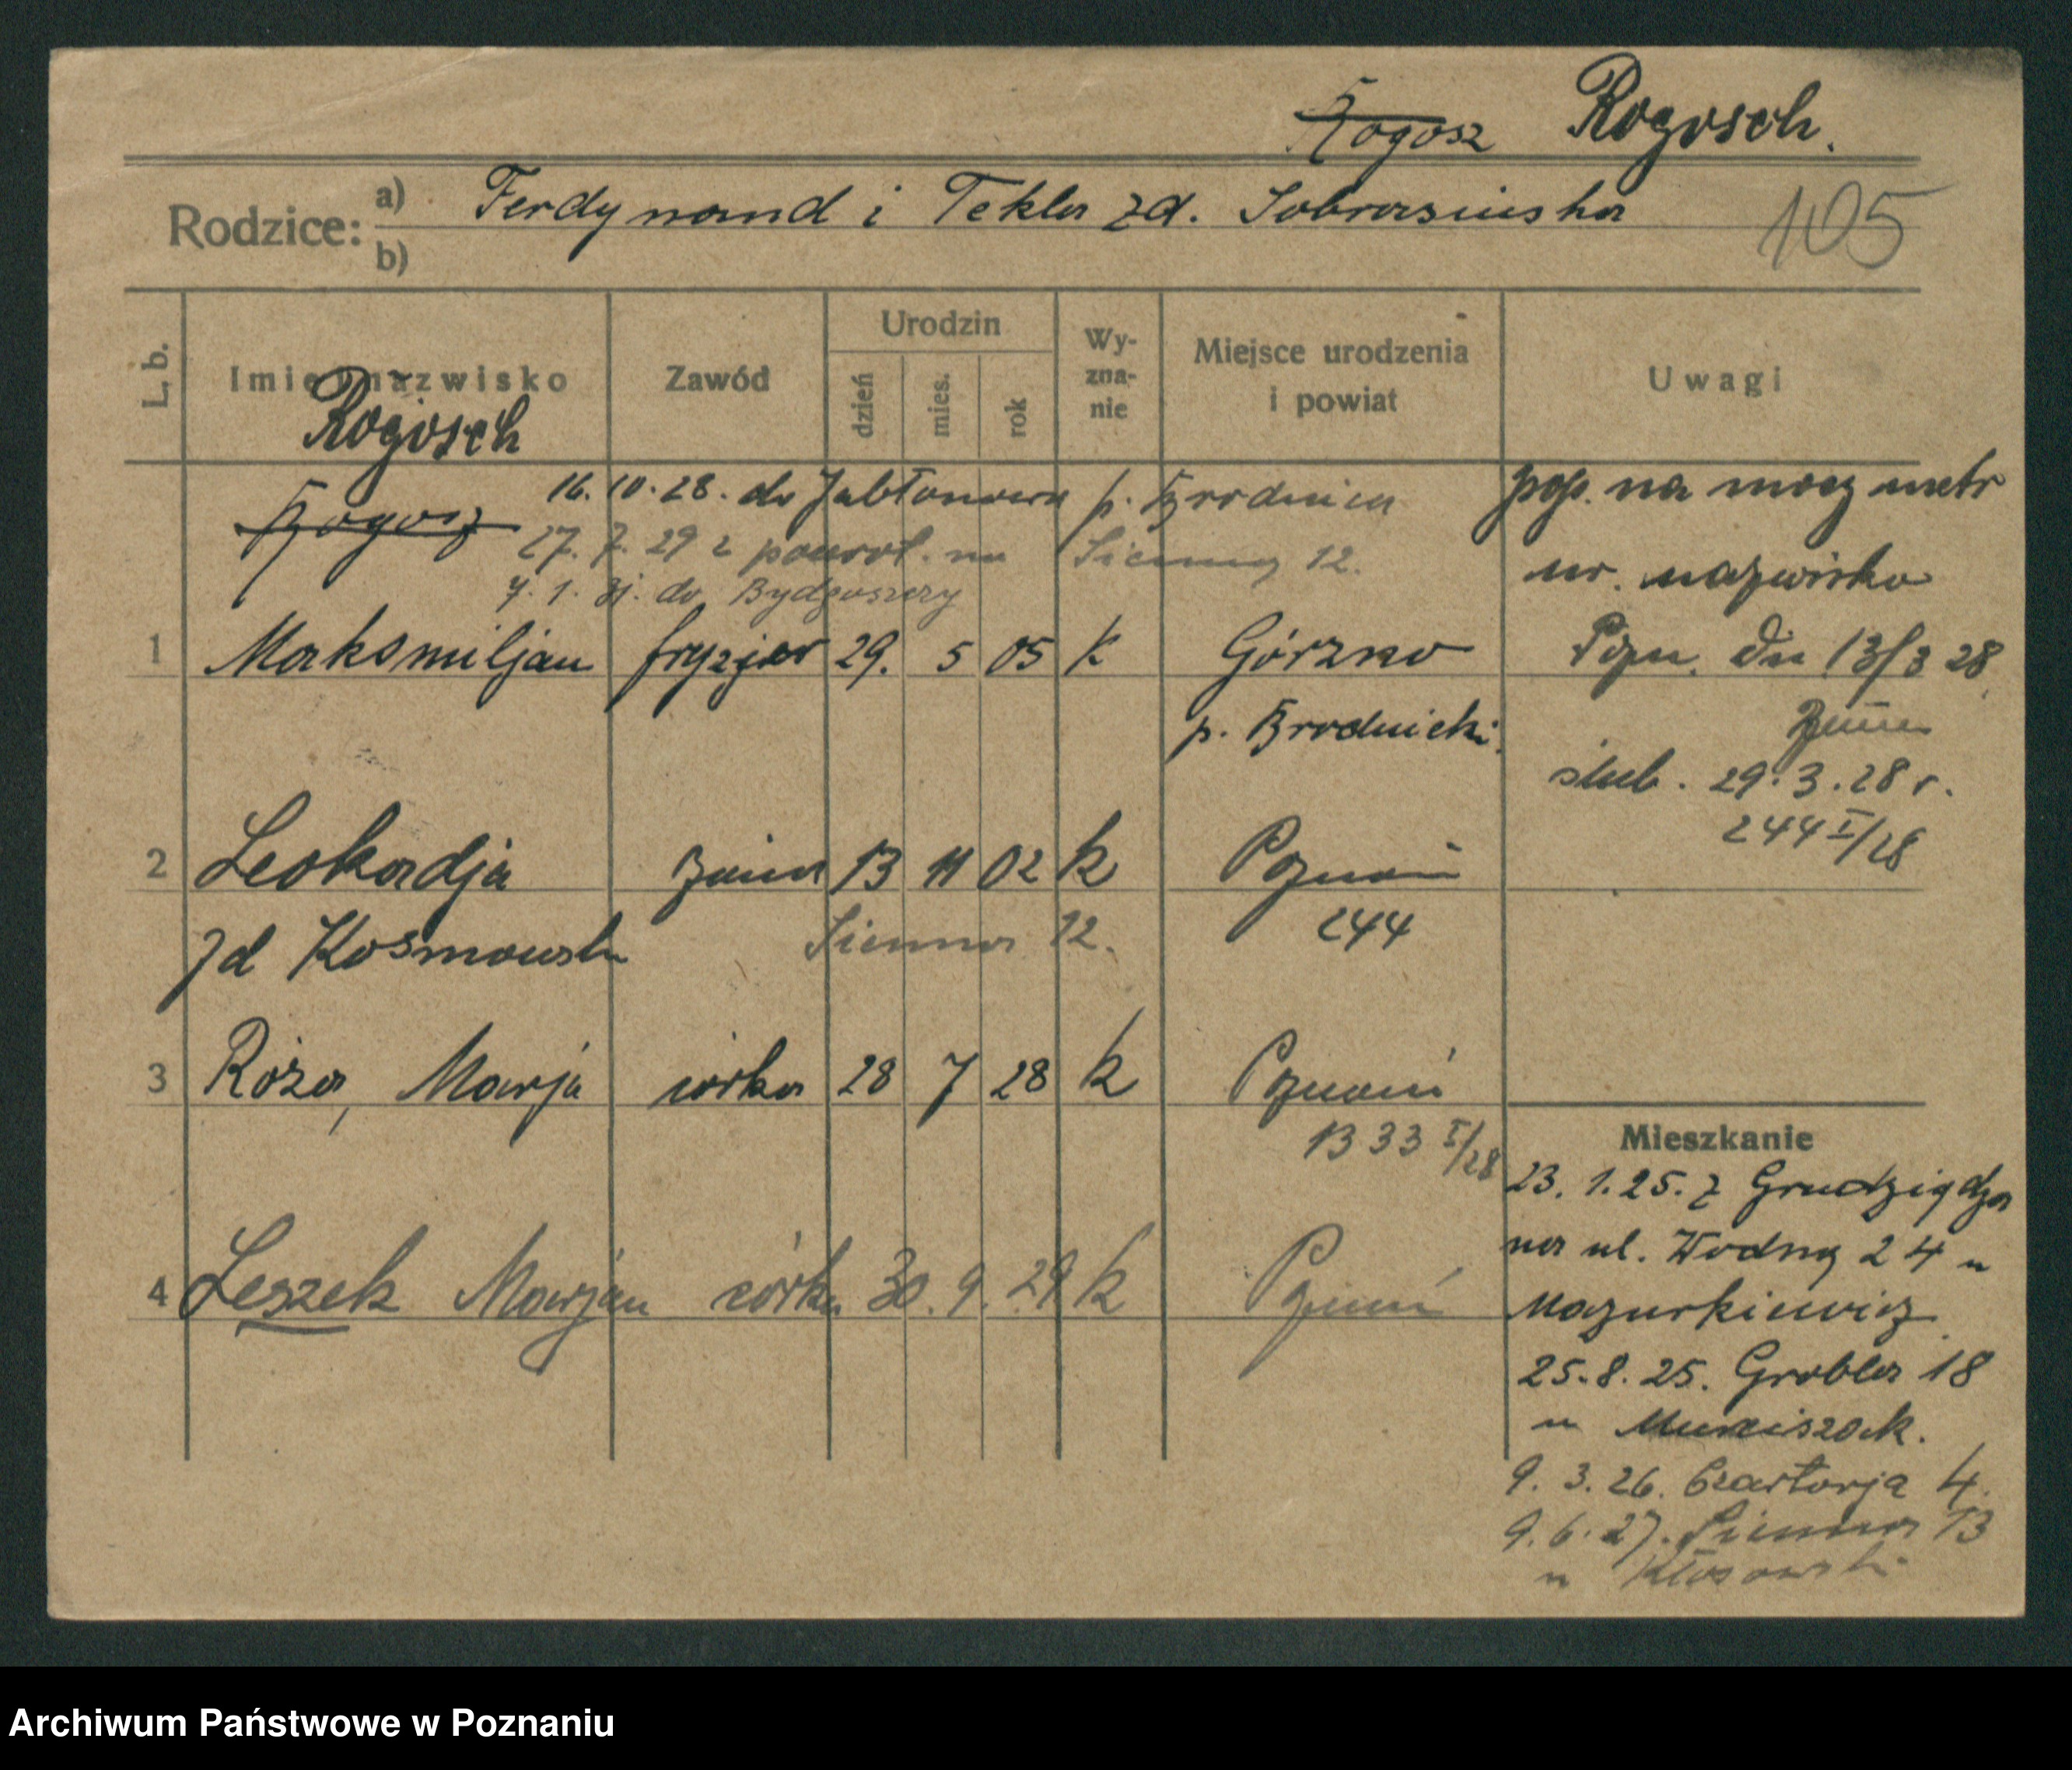 Rogosz Rogosch.
Rodzice: a) Ferdynand i Tekla zd. Sobrasińska
b)
105
L. b. Imię i nazwisko Zawód Urodzin dzień mies. rok Wy-zna-nie Miejsce urodzenia i powiat Uwagi
Rogosch
Rogosz 16.10.28. do Jabłonowa p. Brodnica
27. 7. 29 z powrot. na Sienną 12.
7. 1. 31. do Bydgoszczy
1 Maksmiljan fryzjer 29. 5 05 k Górzno
p. Brodnicki
pop. na mocy metr
ur. nazwisko
Pozn. dn 13/3 28
ślub. 29.3.28 r.
244 I/28
2 Leokadja żona 13 11 02 k Poznań
zd Kosmowska Sienna 12. 244
3 Róża, Marja córka 28 7 28 k Poznań
1333 I/28
4 Leszek Marjan córka 30. 9. 29 k Poznań
Mieszkanie
23. 1. 25. z Grudziądza
na ul. Wodną 24 u
Mazurkiewicz
25. 8. 25. Grobla 18
u
9. 3. 26. Czartorja 4.
9. 6. 27. Sienna 13
u Kłosowski
Archiwum Państwowe w Poznaniu